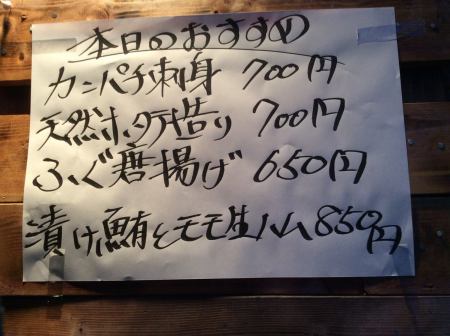 本日のおすすめ
カンパチ刺身 700円
天然ホタテ造り 700円
ふぐ唐揚げ 650円
漬け鮪とモモ生ハム850円